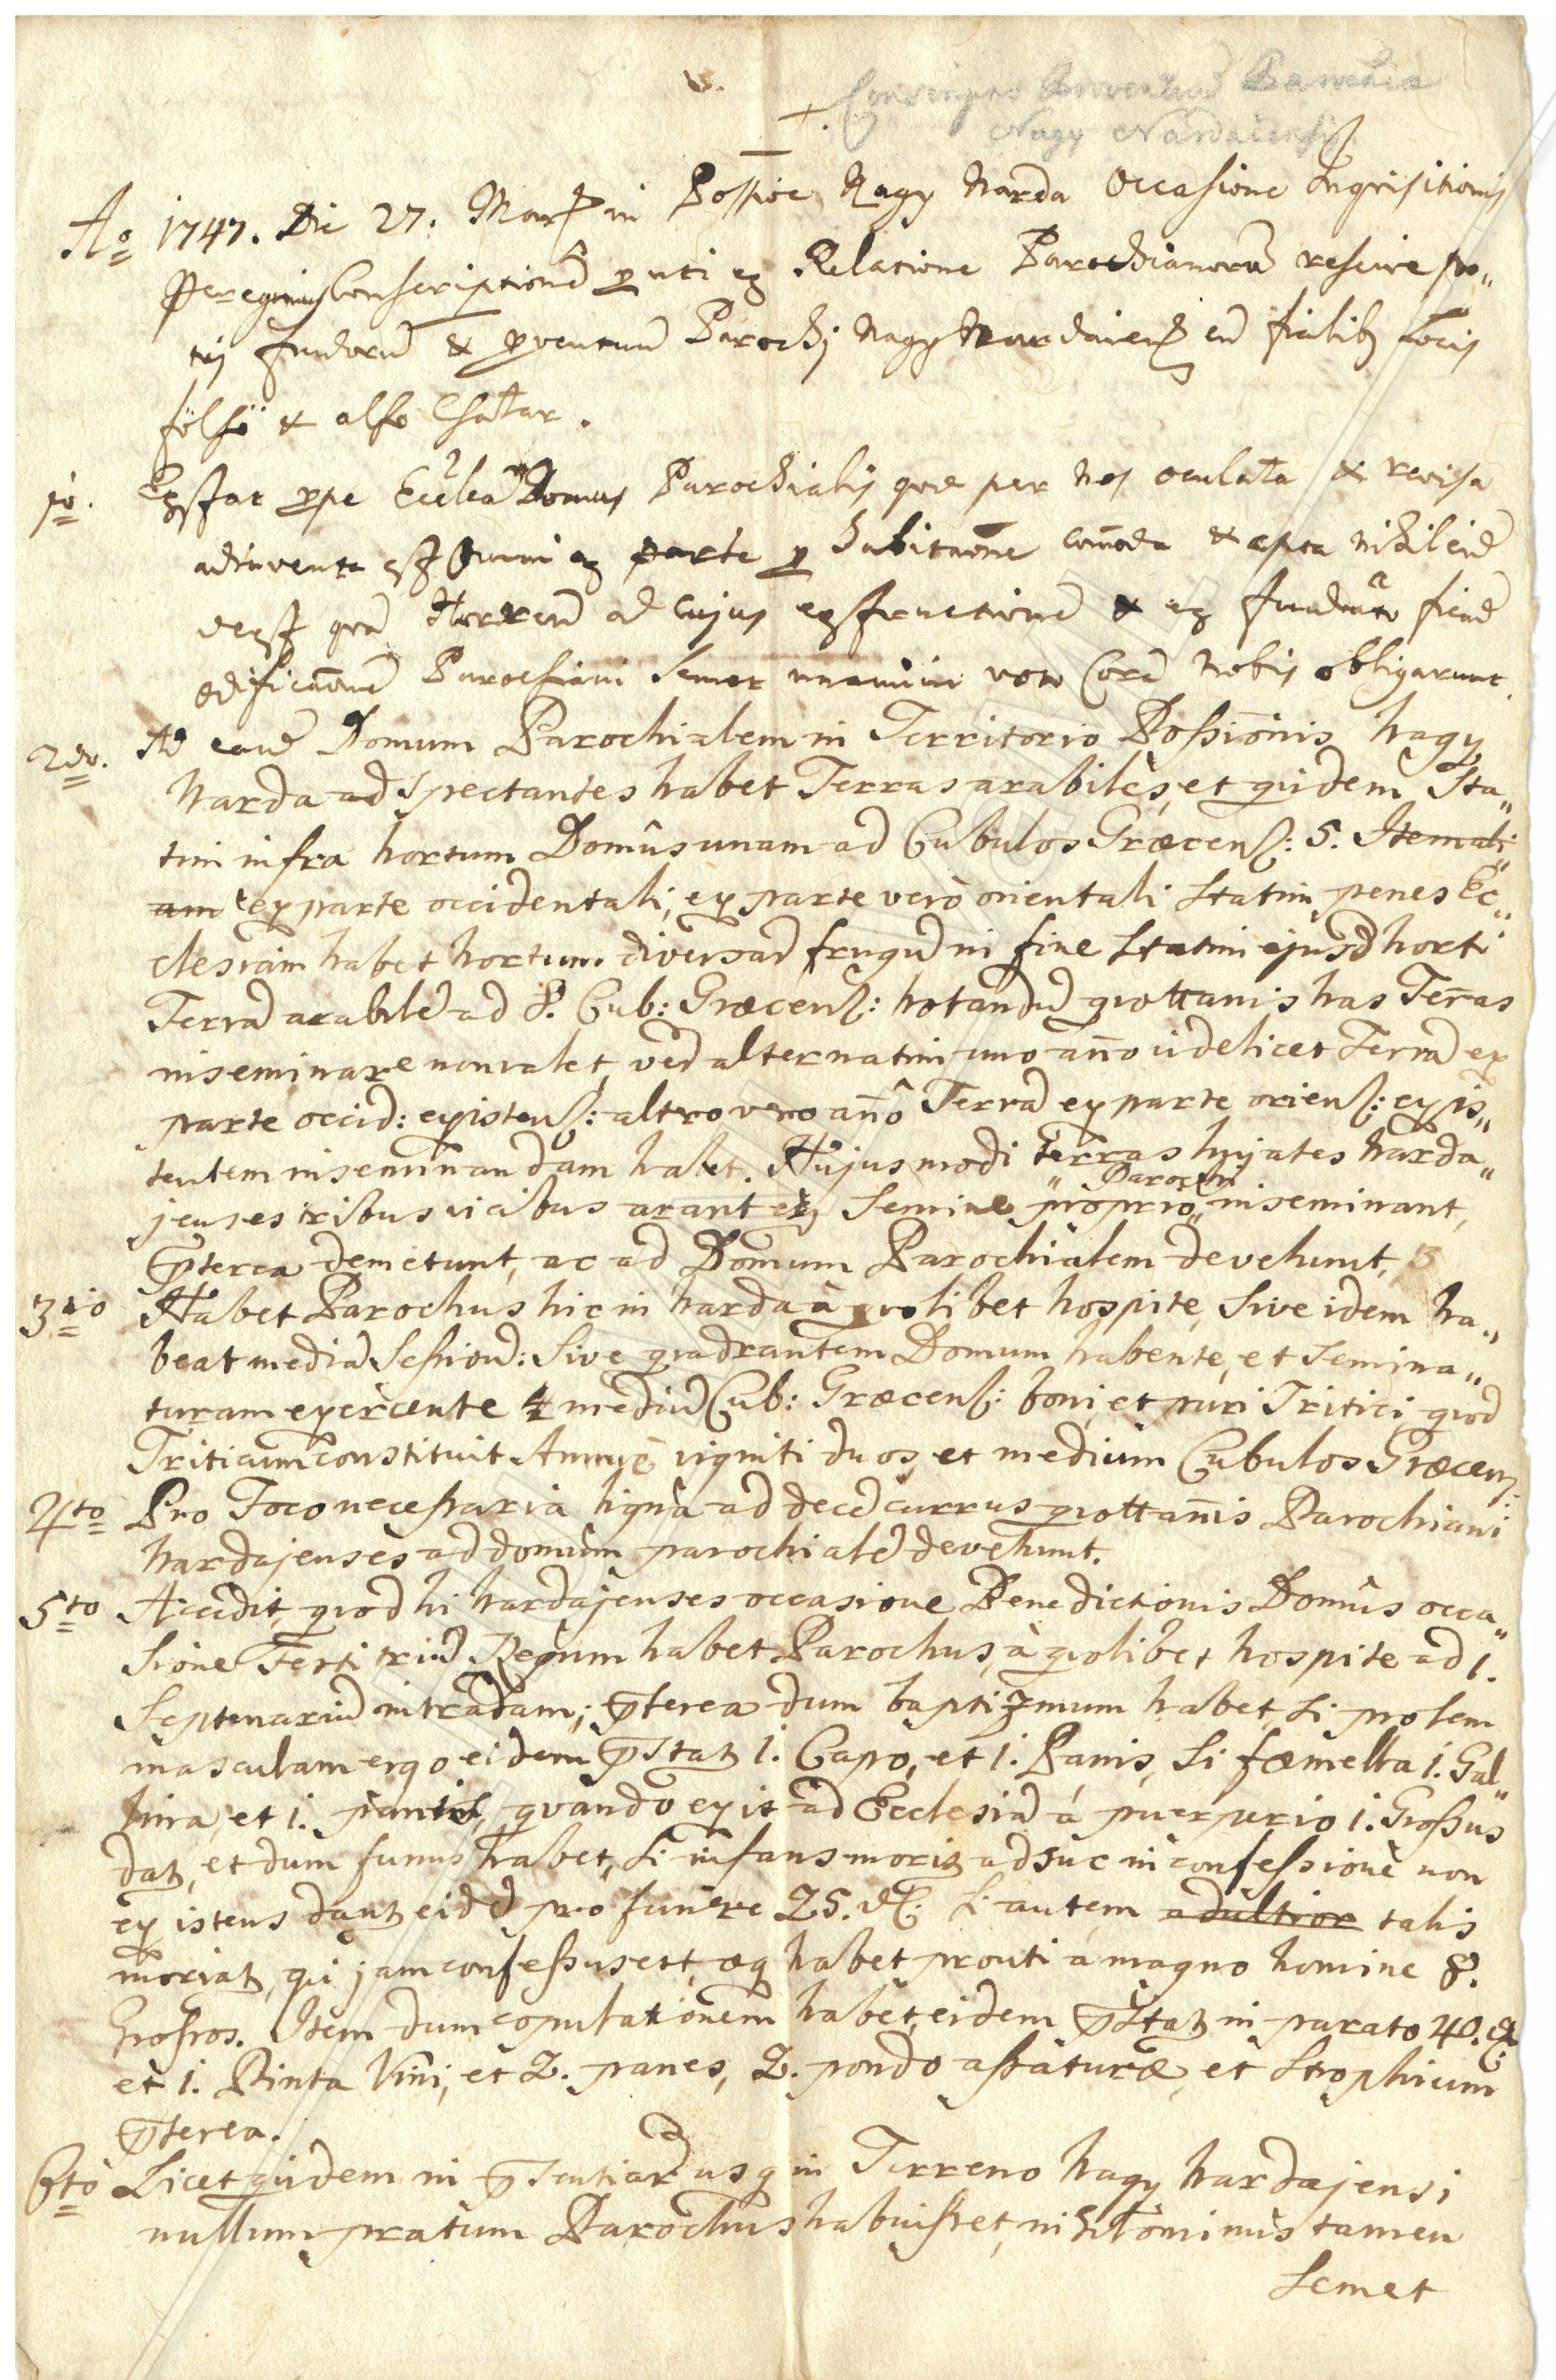 Conscriptio Proventuum Parochiae
Nagy Nardaiensis
Ao 1747. Die 27. Marty in Possioe Nagy Narda Occasione Inquisitionis
peregimus Conscriptione prouti ex Relatione Parochianoru rescire po„
tuj fundoru & proventuum Parochj Nagy Nardaiens cu filialib locis
fölsö & alsó Csatar.
1o. Exstat prpe Ecclea Domus Parochialis que per Nos oculata & revisa
adinventa est omni ex parte p habitaone comoda & apta nihil eid
deest qua Horreu ad cujus exstructione & ex fundamto fiend
edificaone Parochiani Semet unanimi voto Cora Nobis obligarunt.
2do. Ad eand Domum Parochialem in Territorio Possionis Nagy
Narda ad Spectantes habet Terras arabiles, et quidem Sta„
tim infra hortum Domûs unam ad Cubulos Græcens: 5. Item ali„
am ex parte occidentali, ex parte verò orientali Statim penes Ec„
clesiam habet hortum diversar frugu in fine Statim ejusd horti
Terra arabile ad 8. Cub: Græcens: Notandu quottannis has Terras
inseminare non valet, ved alternatim uno anno videlicet Terra ex
parte occid: existens: altro vero annô Terra ex parte oriens: exis„
tentem inseminandam habet. Hujusmodi terras hujates Narda„
jenses tribus vicibus arant et Semine proprio „Parochi„ inseminant,
pterea demetunt, ac ad Domum Parochialem devehunt.
3tio Habet Parochus hic in Narda à quolibet hospite, Sive idem ha„
beat media Session: Sive quadrantem Domum habente, et Semina„
turam exercente mediu Cub: Græcens: boni, et puri Tritici, quod
Triticum constituit Annuè viginti duos, et medium Cubulos Græcens:
4to Pro Foco necessaria ligna ad dece currus quottanis Parochiani
Nardajenses ad domum parochiale devehunt.
5to Accedit, quod hi Nardajenses occasione Benedictionis Domûs occa„
Sione Festi triu Regum habet Parochus, à quolibet hospite ad 1.
Septenariu intradam; pterea dum baptizmum habet, Si prolem
masculam ergo eidem pstat 1. Capo, et 1. Panis, Si fœmella 1. Gal„
lina, et 1. panis, quando exit ad Ecclesia á puerperio 1. Grossus
dat, et dum funus habet, Si infans morit adhuc in confessione non
existens dant eid pro funere 25. d. Si autem adultior talis
moriat, qui jam confessus est, æq habet prouti a magno homine 8.
Grossos. Item dum copulationem habet, eidem pstat in parato 40. d
et 1. Pinta Vini, et 2. panes, 2. pondo assaturæ, et Strophium
pterea.
6to Licet quidem in psentiar usq in Terreno Nagy Nardajensi
nullum pratum Parochus habuisset, nihilominus tamen
Semet